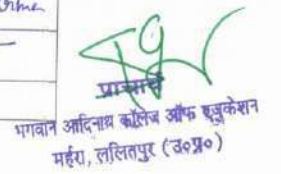 प्राचार्य
भगवान आदिनाथ कालेज ऑफ एजुकेशन
महर्रा, ललितपुर (उ०प्र०)